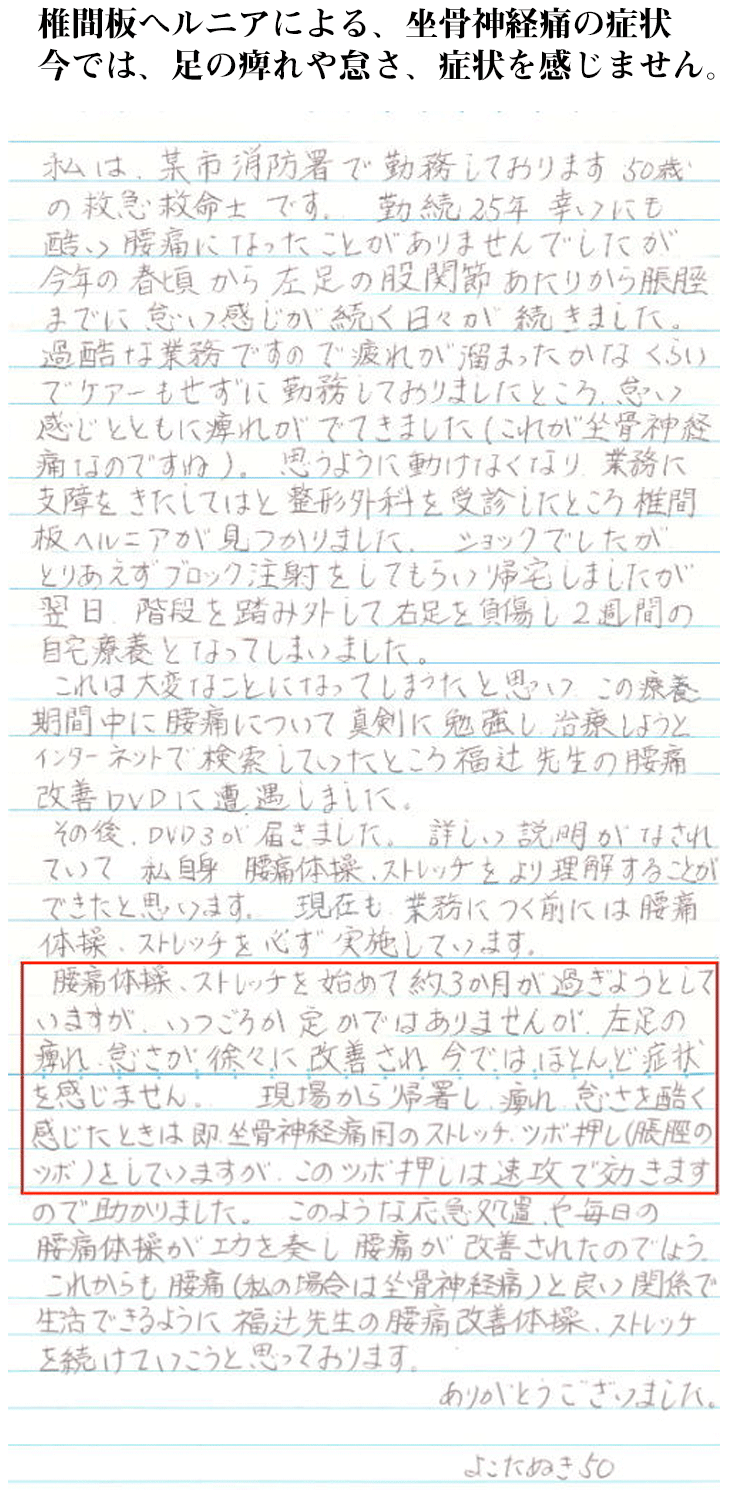 椎間板ヘルニアによる、坐骨神経痛の症状
今では、足の痺れや怠さ、症状を感じません。
私は、某市消防署で勤務しております50歳
の救急救命士です。 勤続25年 幸いにも
酷い腰痛になったことがありませんでしたが
今年の春頃から左足の股関節あたりから脹脛
までに怠い感じが続く日々が続きました。
過酷な業務ですので疲れが溜まったかなくらい
でケアーもせずに勤務しておりましたところ、怠い
感じとともに痺れがでてきました(これが坐骨神経
痛なのですね)。 思うように動けなくなり、業務に
支障をきたしてはと整形外科を受診したところ椎間
板ヘルニアが見つかりました。 ショックでしたが
とりあえずブロック注射をしてもらい帰宅しましたが
翌日、階段を踏み外して右足を負傷し2週間の
自宅療養となってしまいました。
これは大変なことになってしまうたと思い、この療養
期間中に腰痛について真剣に勉強し、治療しようと
インターネットで検索していたところ福辻先生の腰痛
改善DVDに遭遇しました。
その後、DVD3が届きました。 詳しい説明がなされ
ていて 私自身 腰痛体操、ストレッチをより理解することが
できたと思います。 現在も、業務につく前には腰痛
体操、ストレッチを必ず実施しています。
腰痛体操、ストレッチを始めて約3か月が過ぎようとして
いますが、いつごろか定かではありませんが、左足の
痺れ、怠さが徐々に改善され、今では、ほとんど症状
を感じません。 現場から帰署し、痺れ、怠さを酷く
感じたときは即、坐骨神経痛用のストレッチ、ツボ押し(脹脛の
ツボ)をしていますが、このツボ押しは速攻で効きます
ので助かりました。 このような応急処置や毎日の
腰痛体操が功を奏し腰痛が改善されたのでしょう。
これからも腰痛(私の場合は坐骨神経痛)と良い関係で
生活できるように福辻先生の腰痛改善体操、ストレッチ
を続けていこうと思っております。
ありがとうございました。
よこたぬき50